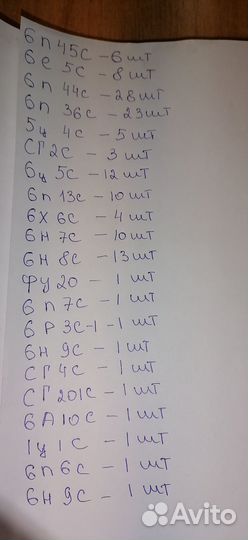 6п 45с - 6 шт
6е 5с - 8 шт
6п 44с - 28 шт
6п 36с - 23 шт
5ц 4с - 5 шт
СГ2С - 3 шт
6ц 5с - 12 шт
6п 13с - 10 шт
6х 6с - 4 шт
6н 7с - 10 шт
6н 8с - 13 шт
Фу 20 - 1 шт
6п 7с - 1 шт
6Р 3С-1 - 1 шт
6н 9с - 1 шт
СГ4С - 1 шт
СГ201С - 1 шт
6А10С - 1 шт
1ц1с - 1 шт
6п6с - 1 шт
6н 9с - 1 шт
Avito